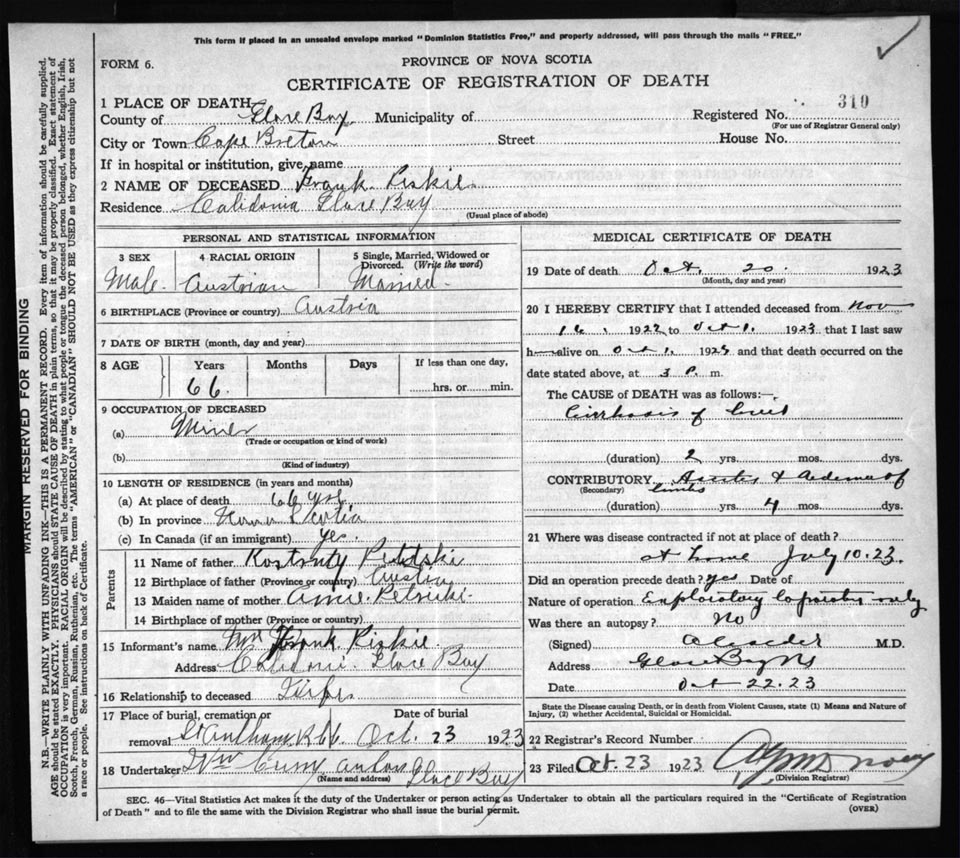 This form if placed in an unsealed envelope marked "Dominion Statistics Free," and properly addressed, will pass through the mails "FREE."
FORM 6.
PROVINCE OF NOVA SCOTIA
CERTIFICATE OF REGISTRATION OF DEATH
1 PLACE OF DEATH
County of Glace Bay Municipality of Registered No. 310
(For use of Registrar General only)
City or Town Cape Breton Street House No.
If in hospital or institution, give name
2 NAME OF DECEASED Frank
Residence Calidonia Glace Bay
(Usual place of abode)
PERSONAL AND STATISTICAL INFORMATION
3 SEX 4 RACIAL ORIGIN 5 Single, Married, Widowed or Divorced. (Write the word)
Male. Austrian Married.
6 BIRTHPLACE (Province or country) Austria
7 DATE OF BIRTH (month, day and year)
8 AGE Years Months Days If less than one day,
66 hrs. or min.
9 OCCUPATION OF DECEASED
(a) Miner
(Trade or occupation or kind of work)
(b)
(Kind of industry)
10 LENGTH OF RESIDENCE (in years and months)
(a) At place of death
(b) In province Nova Scotia
(c) In Canada (if an immigrant) yes.
Parents
11 Name of father
12 Birthplace of father (Province or country) Austria
13 Maiden name of mother Annie
14 Birthplace of mother (Province or country)
15 Informant's name Mrs Frank
Address Glace Bay
16 Relationship to deceased
17 Place of burial, cremation or removal Date of burial
St Oct. 23 1923
18 Undertaker Glace Bay
(Name and address)
MEDICAL CERTIFICATE OF DEATH
19 Date of death Oct. 20. 1923
(Month, day and year)
20 I HEREBY CERTIFY that I attended deceased from Nov
16, 1922 to Oct 1, 1923 that I last saw
h alive on Oct 1, and that death occurred on
date stated above, at 3 P. m.
The CAUSE of DEATH was as follows:—
Cirrhosis of liver
(duration) 2 yrs. mos. dys.
CONTRIBUTORY Ascites & Oedema of
(Secondary) limbs
(duration) yrs. 4 mos. dys.
21 Where was disease contracted if not at place of death?
at home July 10.23.
Did an operation precede death? yes Date of
Nature of operation Exploratory laparotomy only
Was there an autopsy? No
(Signed) M.D.
Address Glace Bay NS
Date Oct 22.23
State the Disease causing Death, or in death from Violent Causes, state (1) Means and Nature of Injury, (2) whether Accidental, Suicidal or Homicidal.
22 Registrar's Record Number
23 Filed Oct. 23 1923
(Division Registrar)
SEC. 46—Vital Statistics Act makes it the duty of the Undertaker or person acting as Undertaker to obtain all the particulars required in the "Certificate of Registration
of Death" and to file the same with the Division Registrar who shall issue the burial permit. (OVER)
MARGIN RESERVED FOR BINDING
N.B.—WRITE PLAINLY WITH UNFADING INK—THIS IS A PERMANENT RECORD. Every item of information should be carefully supplied.
AGE should be stated EXACTLY. PHYSICIANS should STATE CAUSE OF DEATH in plain terms, so that it may be properly classified. Exact statement of
OCCUPATION is very important. RACIAL ORIGIN will be described by stating to what people or tongue the deceased person belonged, whether English, Irish,
Scotch, French, German, Russian, Ruthenian, etc. The terms "AMERICAN" or "CANADIAN" SHOULD NOT BE USED as they express citizenship but not
a race or people. See instructions on back of Certificate.